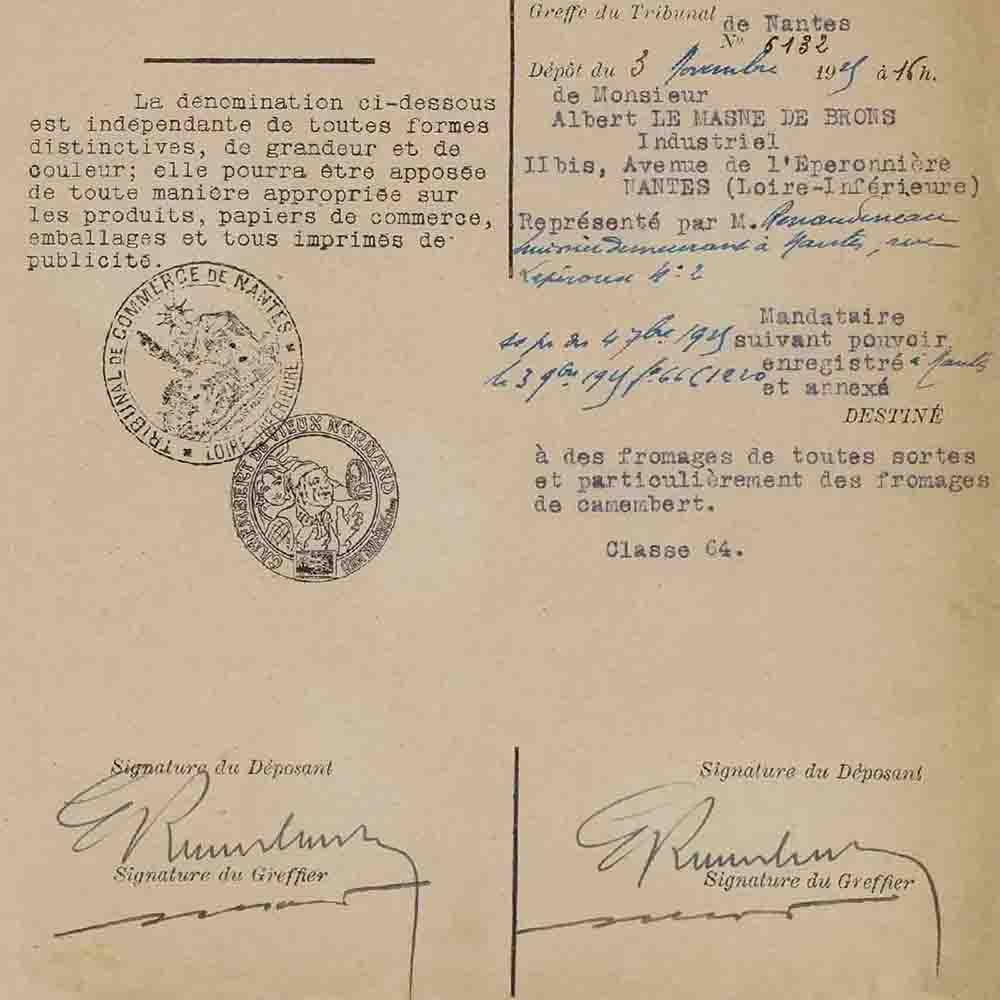 La dénomination ci-dessous
est indépendante de toutes formes
distinctives, de grandeur et de
couleur; elle pourra être apposée
de toute manière appropriée sur
les produits, papiers de commerce,
emballages et tous imprimés de
publicité.
TRIBUNAL DE COMMERCE DE NANTES
* LOIRE INFERIEURE *
CAMEMBERT DU VIEUX NORMAND
Greffe du Tribunal
de Nantes
N° 6132
Dépôt du 3 Novembre 1925 à 16 h.
de Monsieur
Albert LE MASNE DE BRONS
Industriel
IIbis, Avenue de l'Eperonnière
NANTES (Loire-Inférieure)
Représenté par M.
demeurant à Nantes, rue
Lapérouse N° 2
Mandataire
ss pr du 4 7bre 1925 suivant pouvoir
le 3 9bre 1925 enregistré à Nantes
et annexé
DESTINÉ
à des fromages de toutes sortes
et particulièrement des fromages
de camembert.
Classe 64.
Signature du Déposant
Signature du Greffier
Signature du Déposant
Signature du Greffier